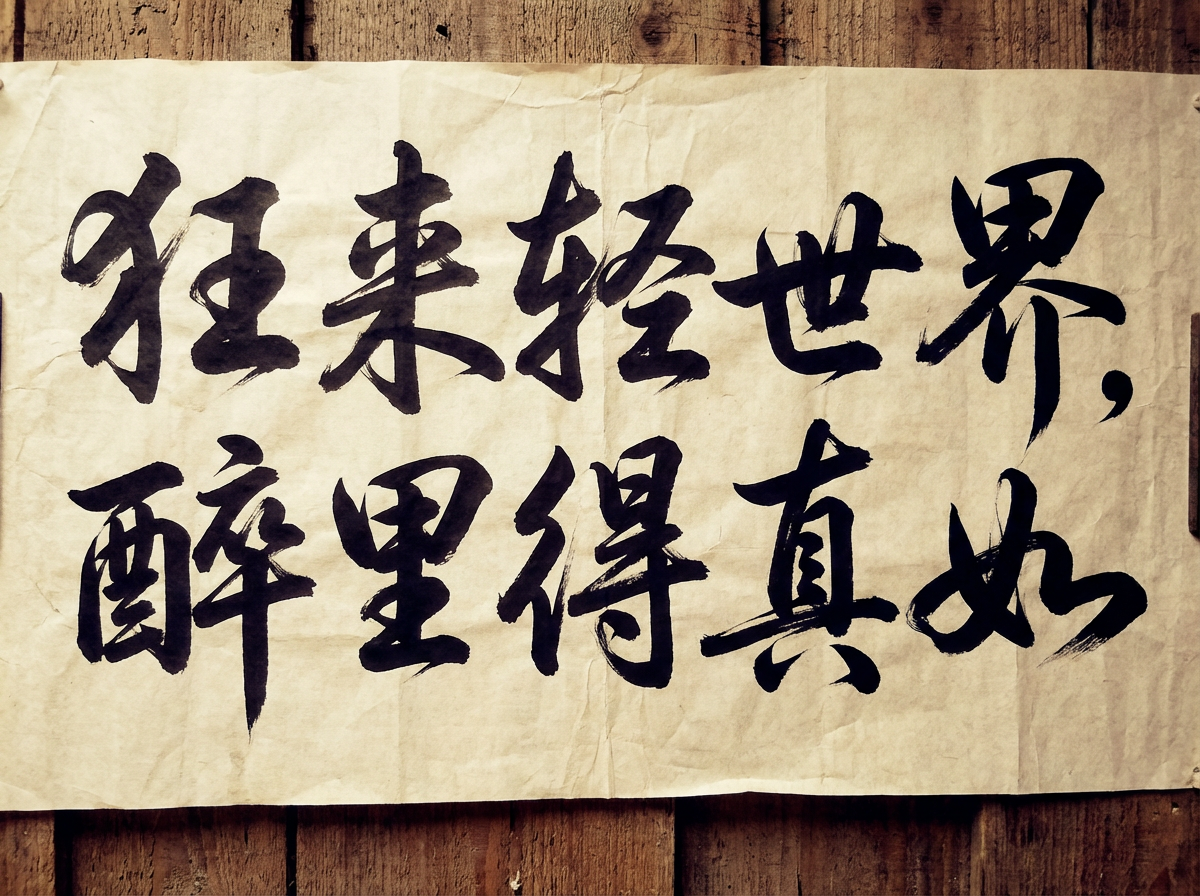 狂来轻世界,
醉里得真如